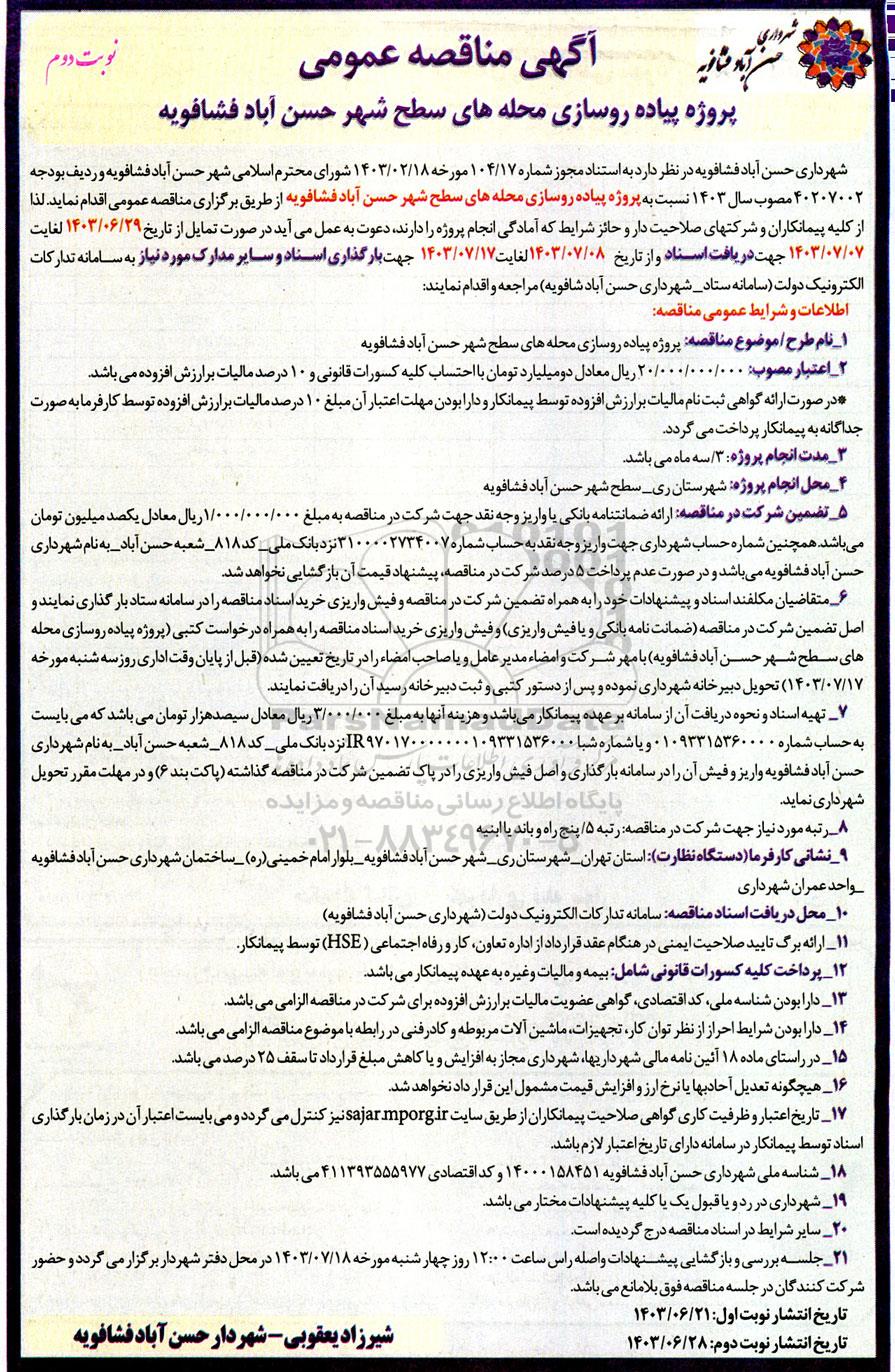 شهرداری
حسن آباد فشافویه
آگهی مناقصه عمومی
نوبت دوم
پروژه پیاده روسازی محله های سطح شهر حسن آباد فشافویه
شهرداری حسن آباد فشافویه در نظر دارد به استناد مجوز شماره ۱۰۴/۱۷ مورخه ۱۴۰۳/۰۲/۱۸ شورای محترم اسلامی شهر حسن آباد فشافویه و ردیف بودجه
۴۰۲۰۷۰۰۲ مصوب سال ۱۴۰۳ نسبت به پروژه پیاده روسازی محله های سطح شهر حسن آباد فشافویه از طریق برگزاری مناقصه عمومی اقدام نماید. لذا
از کلیه پیمانکاران و شرکتهای صلاحیت دار و حائز شرایط که آمادگی انجام پروژه را دارند، دعوت به عمل می آید در صورت تمایل از تاریخ ۱۴۰۳/۰۶/۲۹ لغایت
۱۴۰۳/۰۷/۰۷ جهت دریافت اسناد و از تاریخ ۱۴۰۳/۰۷/۰۸ لغایت ۱۴۰۳/۰۷/۱۷ جهت بارگذاری اسناد و سایر مدارک مورد نیاز به سامانه تدارکات
الکترونیک دولت (سامانه ستاد_ شهرداری حسن آباد شافویه) مراجعه و اقدام نمایند:
اطلاعات و شرایط عمومی مناقصه:
۱_نام طرح / موضوع مناقصه: پروژه پیاده روسازی محله های سطح شهر حسن آباد فشافویه
۲_اعتبار مصوب: ۲۰/۰۰۰/۰۰۰/۰۰۰ ریال معادل دومیلیارد تومان با احتساب کلیه کسورات قانونی و ۱۰ درصد مالیات بر ارزش افزوده می باشد.
*در صورت ارائه گواهی ثبت نام مالیات بر ارزش افزوده توسط پیمانکار و دارا بودن مهلت اعتبار آن مبلغ ۱۰ درصد مالیات بر ارزش افزوده توسط کارفرما به صورت
جداگانه به پیمانکار پرداخت می گردد.
۳_مدت انجام پروژه: ۳/سه ماه می باشد.
۴_محل انجام پروژه: شهرستان ری_ سطح شهر حسن آباد فشافویه
۵_تضمین شرکت در مناقصه: ارائه ضمانتنامه بانکی یا واریز وجه نقد جهت شرکت در مناقصه به مبلغ ۱/۰۰۰/۰۰۰/۰۰۰ ریال معادل یکصد میلیون تومان
می‌باشد. همچنین شماره حساب شهرداری جهت واریز وجه نقد به حساب شماره ۳۱۰۰۰۰۲۷۳۴۰۰۷ نزد بانک ملی_ کد ۸۱۸_ شعبه حسن آباد_ به نام شهرداری
حسن آباد فشافویه می‌باشد و در صورت عدم پرداخت ۵ درصد شرکت در مناقصه، پیشنهاد قیمت آن بازگشایی نخواهد شد.
۶_متقاضیان مکلفند اسناد و پیشنهادات خود را به همراه تضمین شرکت در مناقصه و فیش واریزی خرید اسناد مناقصه را در سامانه ستاد بارگذاری نمایند و
اصل تضمین شرکت در مناقصه (ضمانت نامه بانکی و یا فیش واریزی) و فیش واریزی خرید اسناد مناقصه را به همراه درخواست کتبی (پروژه پیاده روسازی محله
های سطح شهر حسن آباد فشافویه) با مهر شرکت و امضاء مدیر عامل و یا صاحب امضاء را در تاریخ تعیین شده (قبل از پایان وقت اداری روز سه شنبه مورخه
۱۴۰۳/۰۷/۱۷) تحویل دبیرخانه شهرداری نموده و پس از دستور کتبی و ثبت دبیرخانه رسید آن را دریافت نمایند.
۷_ تهیه اسناد و نحوه دریافت آن از سامانه بر عهده پیمانکار می‌باشد و هزینه آنها به مبلغ ۳/۰۰۰/۰۰۰ ریال معادل سیصد هزار تومان می باشد که می بایست
به حساب شماره ۰۱۰۹۳۳۱۵۳۶۰۰۰۰ و یا شماره شبا IR ۹۷۰۱۷۰۰۰۰۰۰۰۱۰۹۳۳۱۵۳۶۰۰۰ نزد بانک ملی_ کد ۸۱۸_ شعبه حسن آباد_ به نام شهرداری
حسن آباد فشافویه واریز و فیش آن را در سامانه بارگذاری و اصل فیش واریزی را در پاک تضمین شرکت در مناقصه گذاشته (پاکت بند ۶) و در مهلت مقرر تحویل
شهرداری نماید.
۸_رتبه مورد نیاز جهت شرکت در مناقصه: رتبه ۵/ پنج راه و باند یا ابنیه
۹_نشانی کارفرما (دستگاه نظارت): استان تهران_ شهرستان ری_ شهر حسن آباد فشافویه_ بلوار امام خمینی (ره) _ساختمان شهرداری حسن آباد فشافویه
_واحد عمران شهرداری
۱۰_محل دریافت اسناد مناقصه: سامانه تدارکات الکترونیک دولت (شهرداری حسن آباد فشافویه)
۱۱_ ارائه برگ تایید صلاحیت ایمنی در هنگام عقد قرارداد از اداره تعاون، کار و رفاه اجتماعی (HSE) توسط پیمانکار.
۱۲_پرداخت کلیه کسورات قانونی شامل: بیمه و مالیات و غیره به عهده پیمانکار می باشد.
۱۳_ دارا بودن شناسه ملی، کد اقتصادی، گواهی عضویت مالیات بر ارزش افزوده برای شرکت در مناقصه الزامی می باشد.
۱۴_ دارا بودن شرایط احراز از نظر توان کار، تجهیزات، ماشین آلات مربوطه و کادر فنی در رابطه با موضوع مناقصه الزامی می باشد.
۱۵_ در راستای ماده ۱۸ آئین نامه مالی شهرداریها، شهرداری مجاز به افزایش و یا کاهش مبلغ قرارداد تا سقف ۲۵ درصد می باشد.
۱۶_هیچگونه تعدیل آحادبها یا نرخ ارز و افزایش قیمت مشمول این قرار داد نخواهد شد.
۱۷_ تاریخ اعتبار و ظرفیت کاری گواهی صلاحیت پیمانکاران از طریق سایت sajar.mporg.ir نیز کنترل می گردد و می بایست اعتبار آن در زمان بارگذاری
اسناد توسط پیمانکار در سامانه دارای تاریخ اعتبار لازم باشد.
۱۸_ شناسه ملی شهرداری حسن آباد فشافویه ۱۴۰۰۰۱۵۸۴۵۱ و کد اقتصادی ۴۱۱۳۹۳۵۵۵۹۷۷ می باشد.
۱۹_ شهرداری در رد و یا قبول یک یا کلیه پیشنهادات مختار می باشد.
۲۰_ سایر شرایط در اسناد مناقصه درج گردیده است.
۲۱_جلسه بررسی و بازگشایی پیشنهادات واصله راس ساعت ۱۲:۰۰ روز چهار شنبه مورخه ۱۴۰۳/۰۷/۱۸ در محل دفتر شهردار برگزار می گردد و حضور
شرکت کنندگان در جلسه مناقصه فوق بلامانع می باشد.
تاریخ انتشار نوبت اول: ۱۴۰۳/۰۶/۲۱
تاریخ انتشار نوبت دوم: ۱۴۰۳/۰۶/۲۸
شیرزاد یعقوبی – شهردار حسن آباد فشافویه
ParsNamadData
پایگاه اطلاع رسانی مناقصه و مزایده
۰۲۱-۸۸۳۴۹۶۷۰-۵